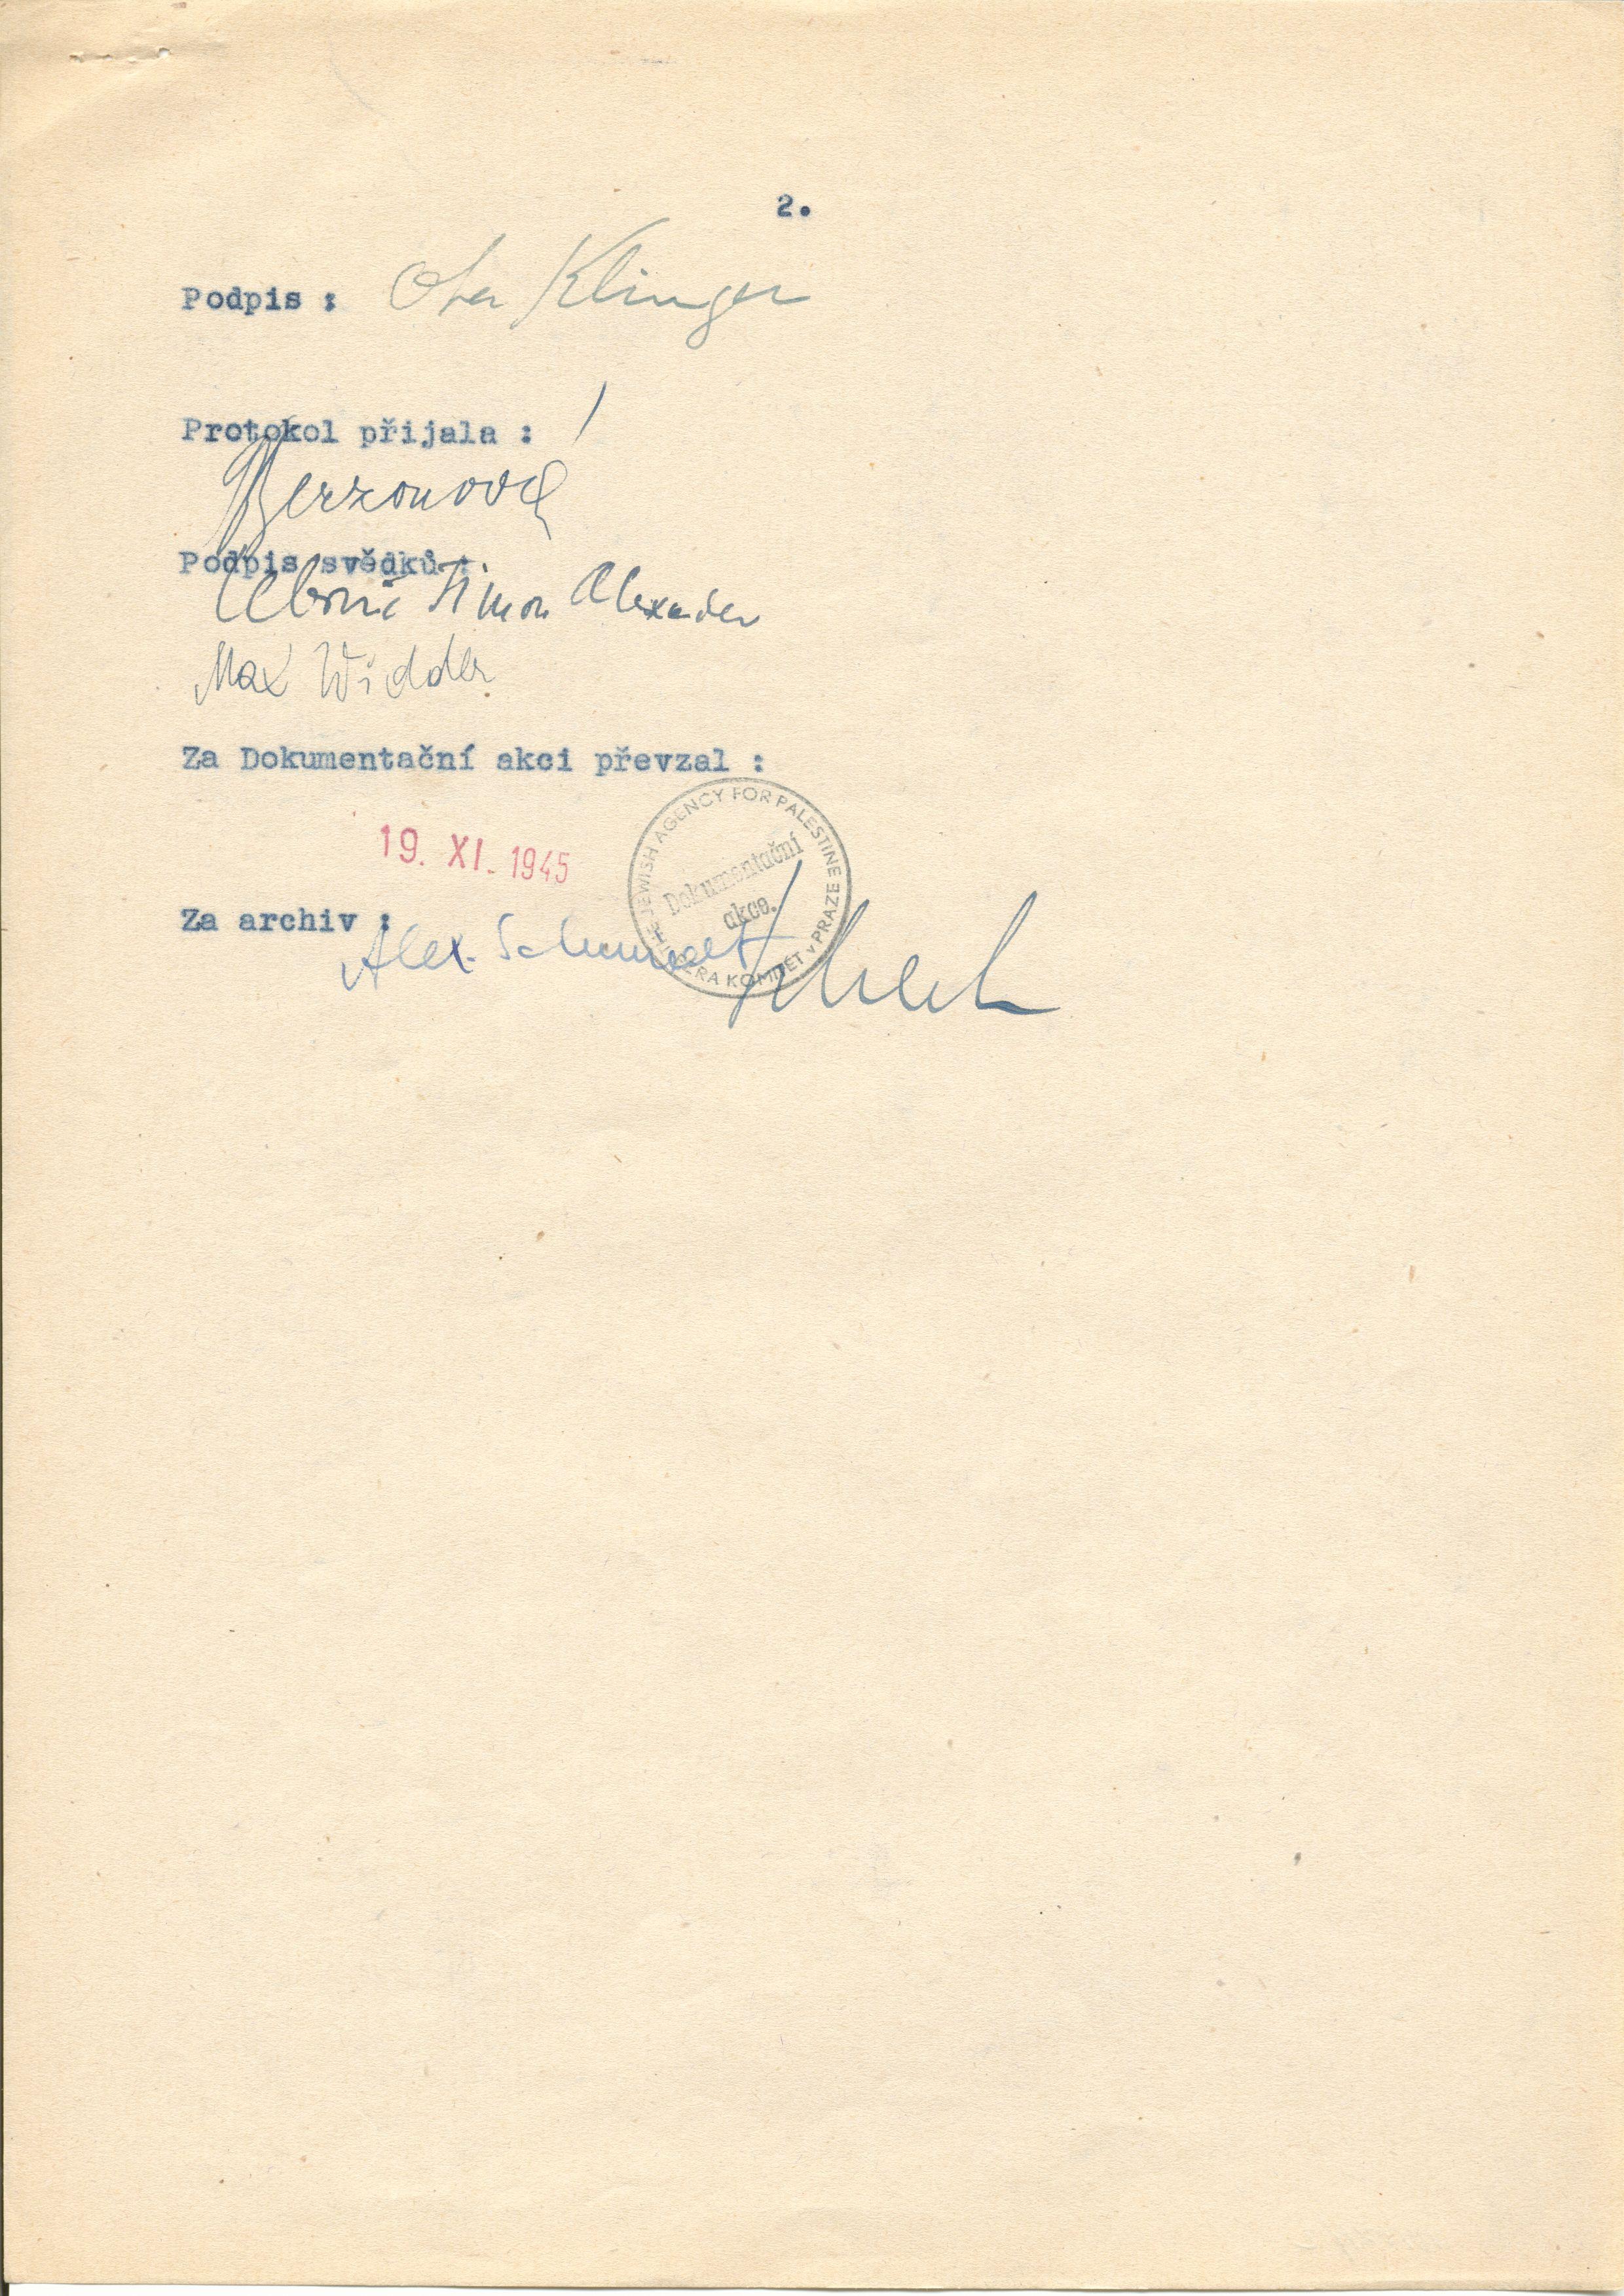 2.
Podpis : Ota Klinger
Protokol přijala :
Berzonová
Podpis svědků :
Simon Alexander
Max Widder
Za Dokumentační akci převzal :
19. XI. 1945
JEWISH AGENCY FOR PALESTINE
Dokumentační
akce.
KOMITET v PRAZE
Za archiv :
Alex. Schmiedt